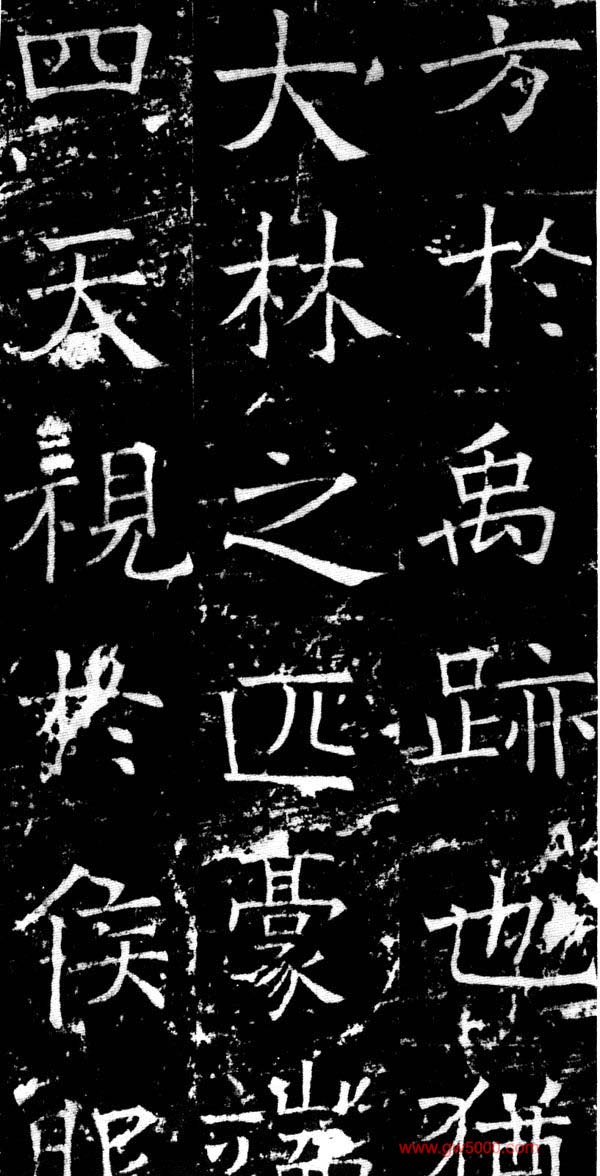 方於禹跡也猶
大林之匹豪端
四天視於侯
www.gw5000.com